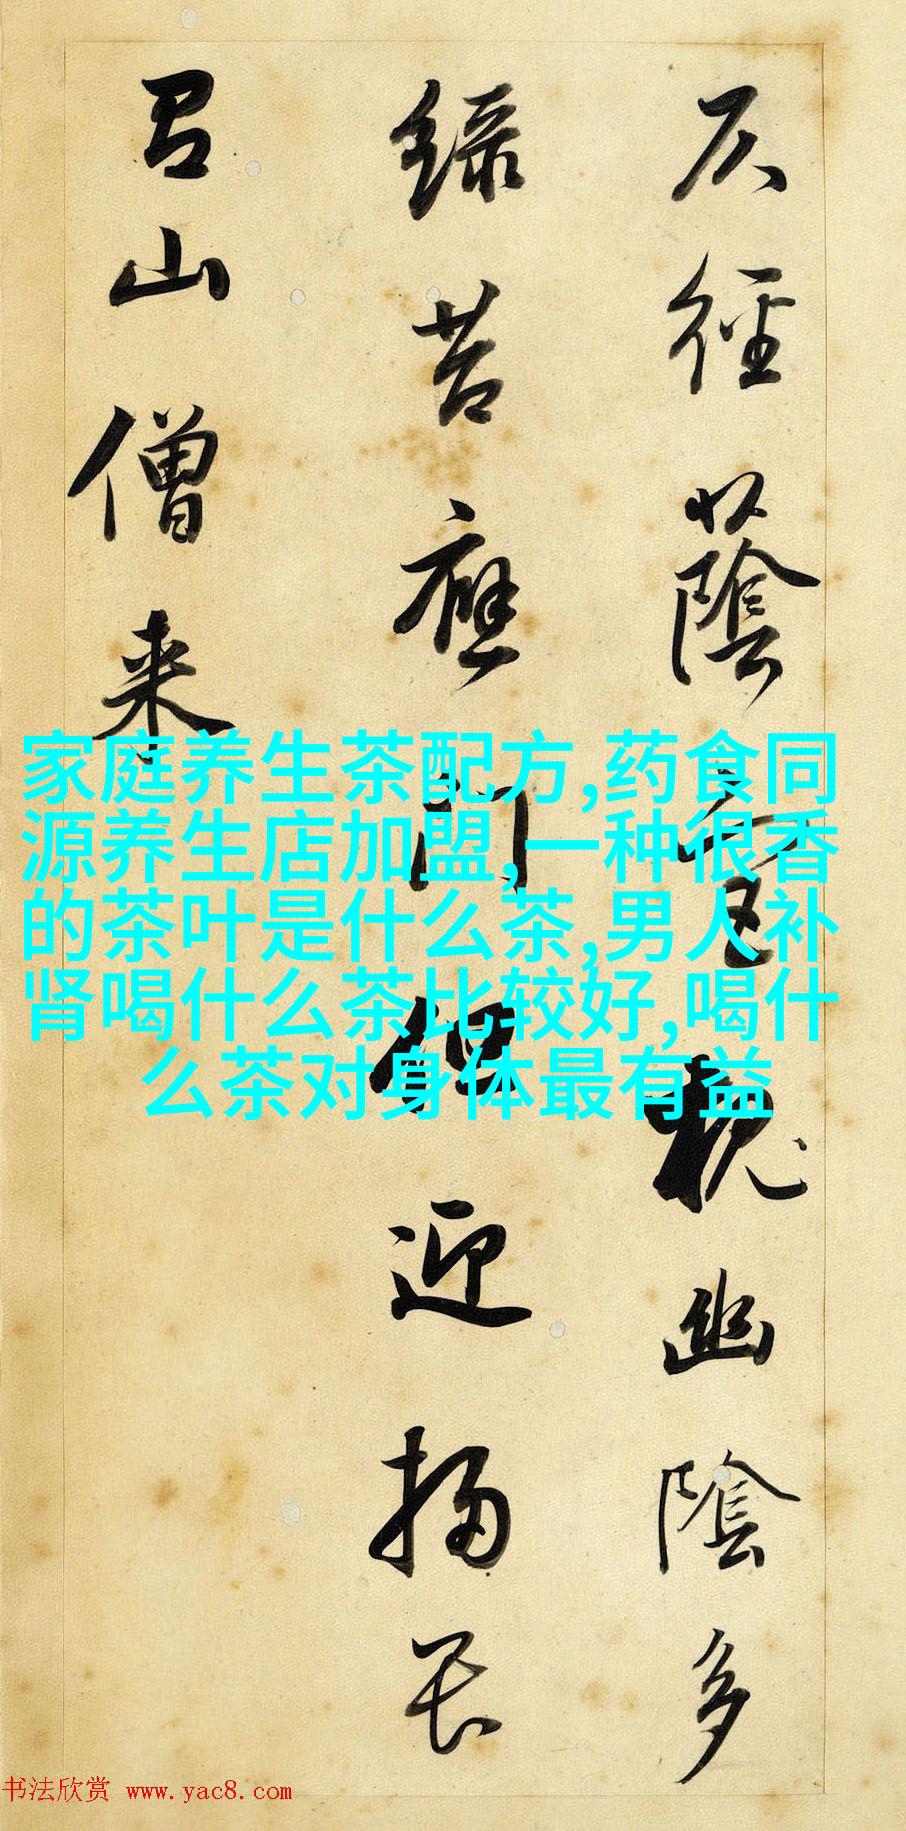 仄徑蔭宮槐幽陰多
綠苔應門但迎掃畏
有山僧来
家庭养生茶配方,药食同
源养生店加盟,一种很香
的茶叶是什么茶,男人补
肾喝什么茶比较好,喝什
么茶对身体最有益
书法欣赏 www.yac8.com